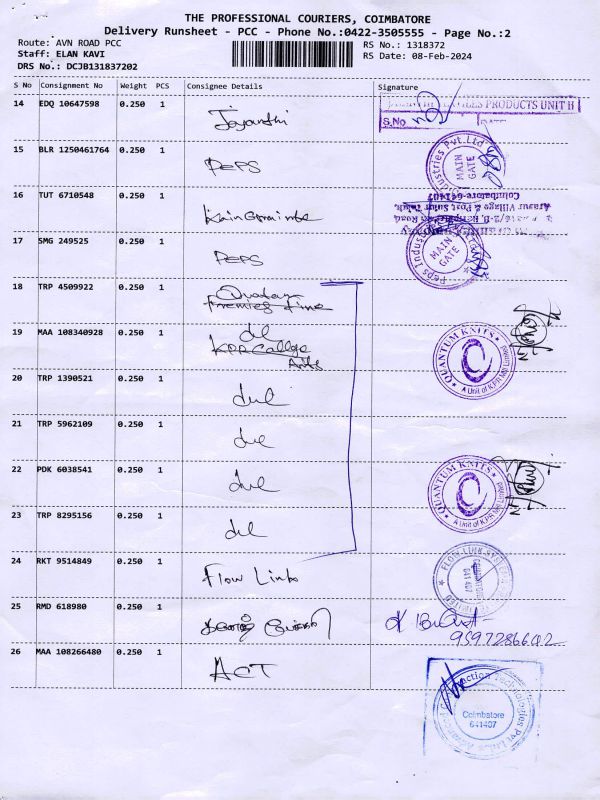 THE PROFESSIONAL COURIERS, COIMBATORE
Delivery Runsheet - PCC - Phone No.:0422-3505555 - Page No.:2
Route: AVN ROAD PCC
Staff: ELAN KAVI
DRS No.: DCJB131837202
RS No.: 1318372
RS Date: 08-Feb-2024
S No Consignment No Weight PCS Consignee Details Signature
14 EDQ 10647598 0.250 1 Jayanthi
PRODUCTS UNIT II
S.No
15 BLR 1250461764 0.250 1 PEPS
MAIN GATE
16 TUT 6710548 0.250 1
Arasur Village & Post Sulur Taluk,
Coimbatore-641407
17 SMG 249525 0.250 1 PEPS
Peps Industries MAIN GATE
18 TRP 4509922 0.250 1 Quadax
Premier Fine
19 MAA 108340928 0.250 1 dul
KPR College
Arts
QUANTUM KNITS A Unit of KPR Mill Limited
20 TRP 1390521 0.250 1 dul
21 TRP 5962109 0.250 1 dul
22 PDK 6038541 0.250 1 dul
QUANTUM KNITS A Unit of KPR Mill Limited
23 TRP 8295156 0.250 1 dul
24 RKT 9514849 0.250 1 Flow Link
FLOW LINK SYSTEMS PRIVATE LIMITED 641407
25 RMD 618980 0.250 1
9597286642
26 MAA 108266480 0.250 1 ACT
Coimbatore
641407